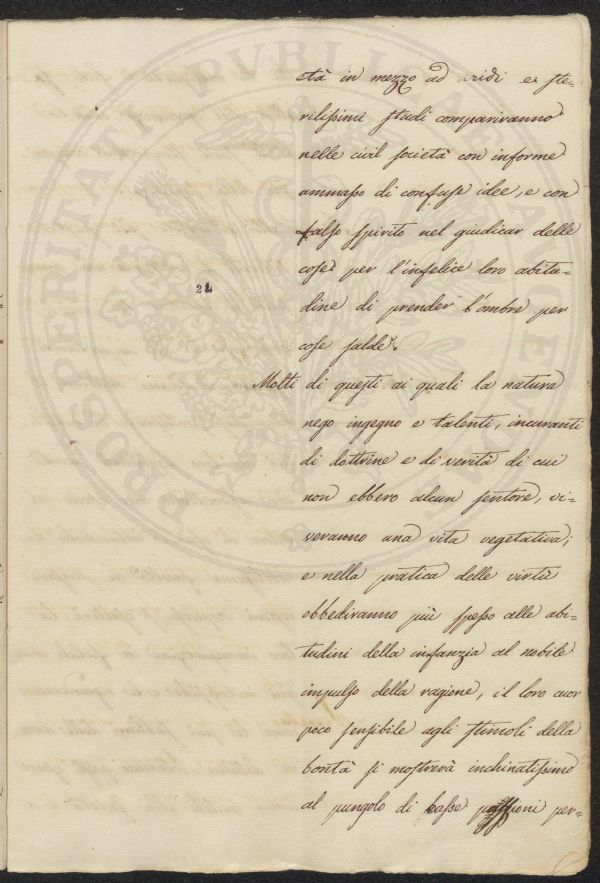 età in mezzo ad aridi e ste=
rilissimi studi compariranno
nelle civil società con informe
ammasso di confuse idee, e con
falso spirito nel giudicar delle
cose per l'infelice loro abitu=
dine di prender l'ombre per
cose salde.
21
Molti di questi ai quali la natura
nego ingegno e talenti, incuranti
di dottrine e di verità di cui
non ebbero alcun sentore, vi=
veranno una vita vegetativa;
e nella pratica delle virtù
obbediranno più spesso alle abi=
tudini della infanzia al nobile
impulso della ragione, il loro cuor
poco sensibile agli stimoli della
bontà si mostrerà inchinatissimo
al pungolo di basse passioni per=
PROSPERITATI PVBLICAE AVGENDAE